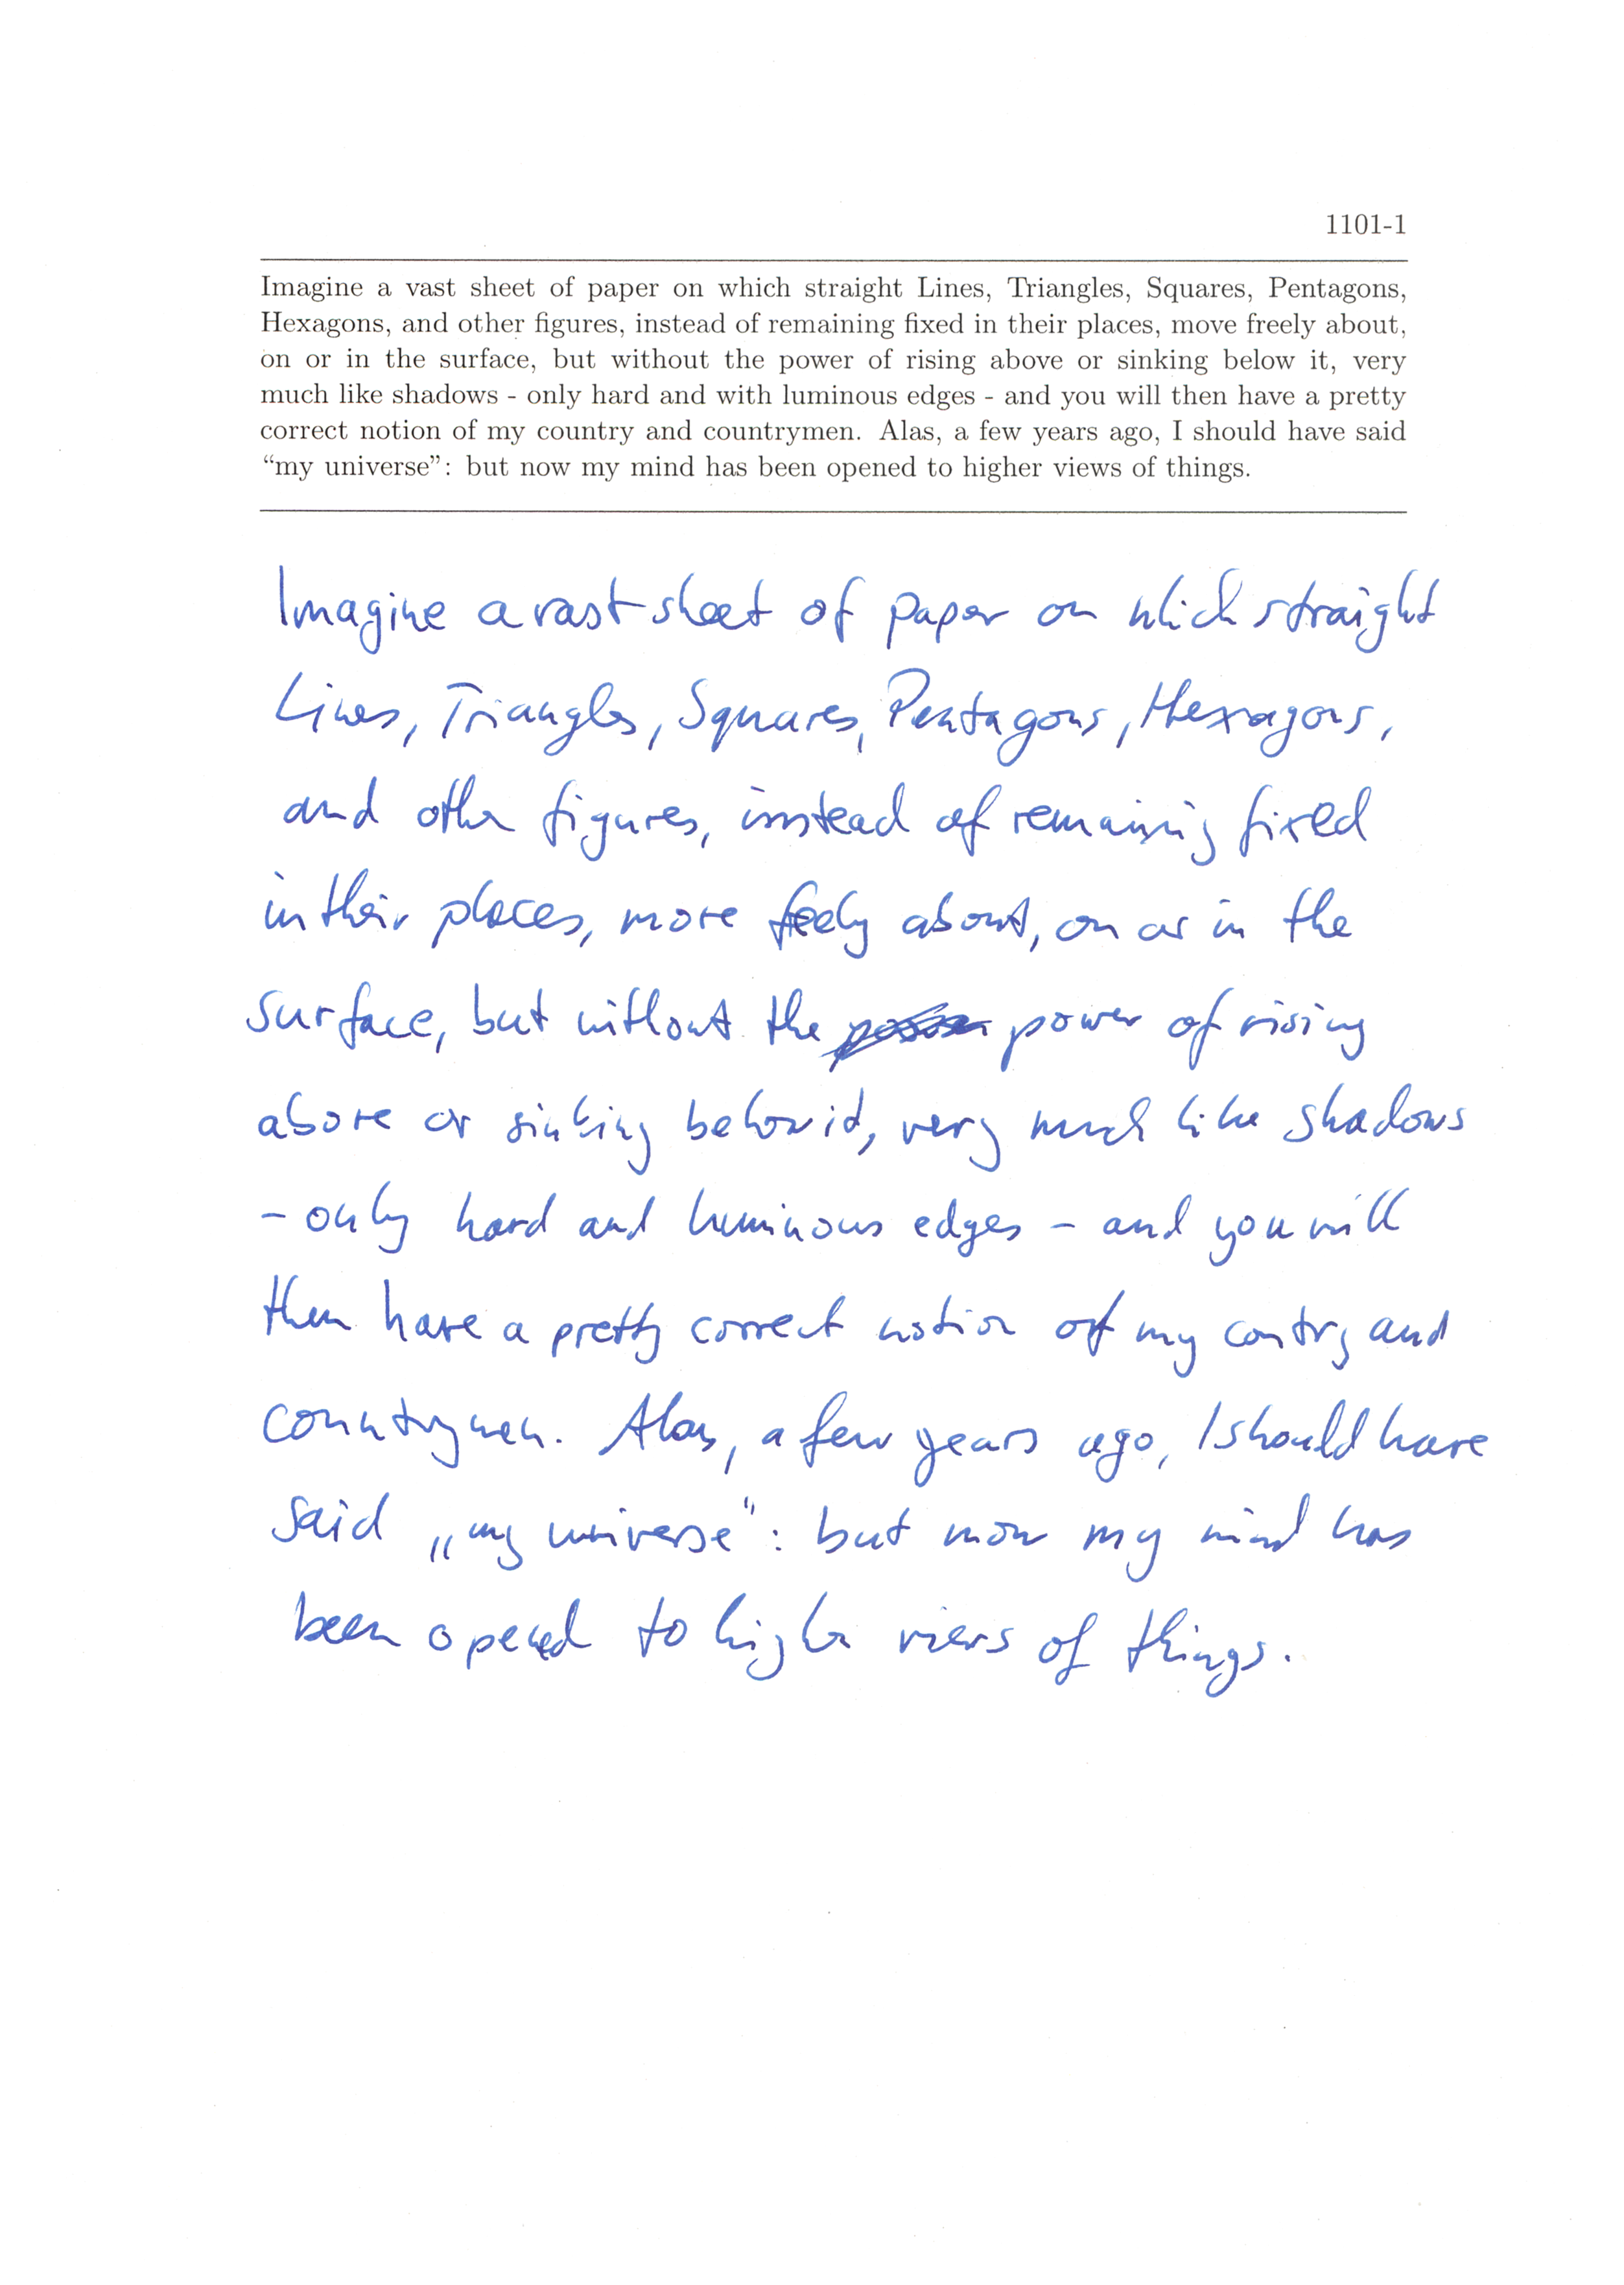 1101-1
Imagine a vast sheet of paper on which straight Lines, Triangles, Squares, Pentagons,
Hexagons, and other figures, instead of remaining fixed in their places, move freely about,
on or in the surface, but without the power of rising above or sinking below it, very
much like shadows - only hard and with luminous edges - and you will then have a pretty
correct notion of my country and countrymen. Alas, a few years ago, I should have said
“my universe”: but now my mind has been opened to higher views of things.
Imagine a vast sheet of paper on which straight
Lines, Triangles, Squares, Pentagons, Hexagons,
and other figures, instead of remaining fixed
in their places, move freely about, on or in the
surface, but without the power of rising
above or sinking below it, very much like shadows
- only hard and luminous edges - and you will
then have a pretty correct notion of my contry and
countrymen. Alas, a few years ago, I should have
said „my universe“: but now my mind has
been opened to higher views of things.